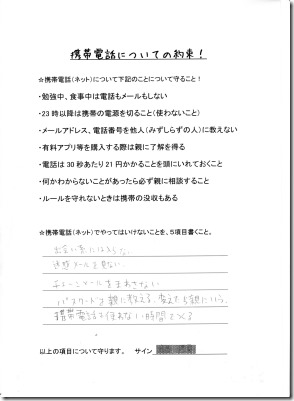 携帯電話についての約束！
☆携帯電話(ネット)について下記のことについて守ること！
・勉強中、食事中は電話もメールもしない
・23時以降は携帯の電源を切ること(使わないこと)
・メールアドレス、電話番号を他人(みずしらずの人)に教えない
・有料アプリ等を購入する際は親に了解を得る
・電話は30秒あたり21円かかることを頭にいれておくこと
・何かわからないことがあったら必ず親に相談すること
・ルールを守れないときは携帯の没収もある
☆携帯電話(ネット)でやってはいけないことを、5項目書くこと。
迷惑メールを見ない
チェーンメールをまわさない
パスワードは親に教える。変えても親にいう。
携帯電話を使わない時間をつくる
以上の項目について守ります。 サイン